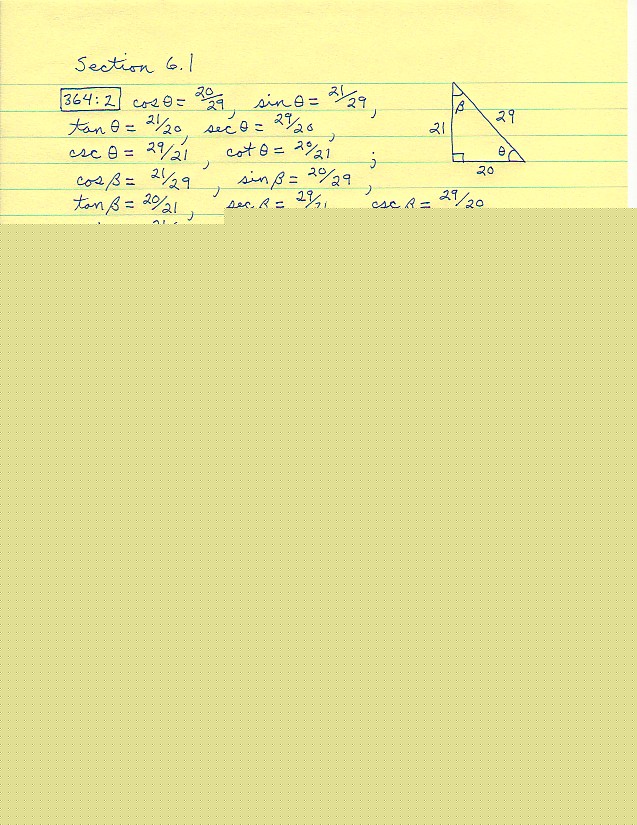 Section 6.1
364:2 cos θ = 20/29, sin θ = 21/29,
tan θ = 21/20, sec θ = 29/20,
csc θ = 29/21, cot θ = 20/21;
cos β = 21/29, sin β = 20/29,
tan β = 20/21, sec β = 29/21 csc β = 29/20
β
29
21
θ
20